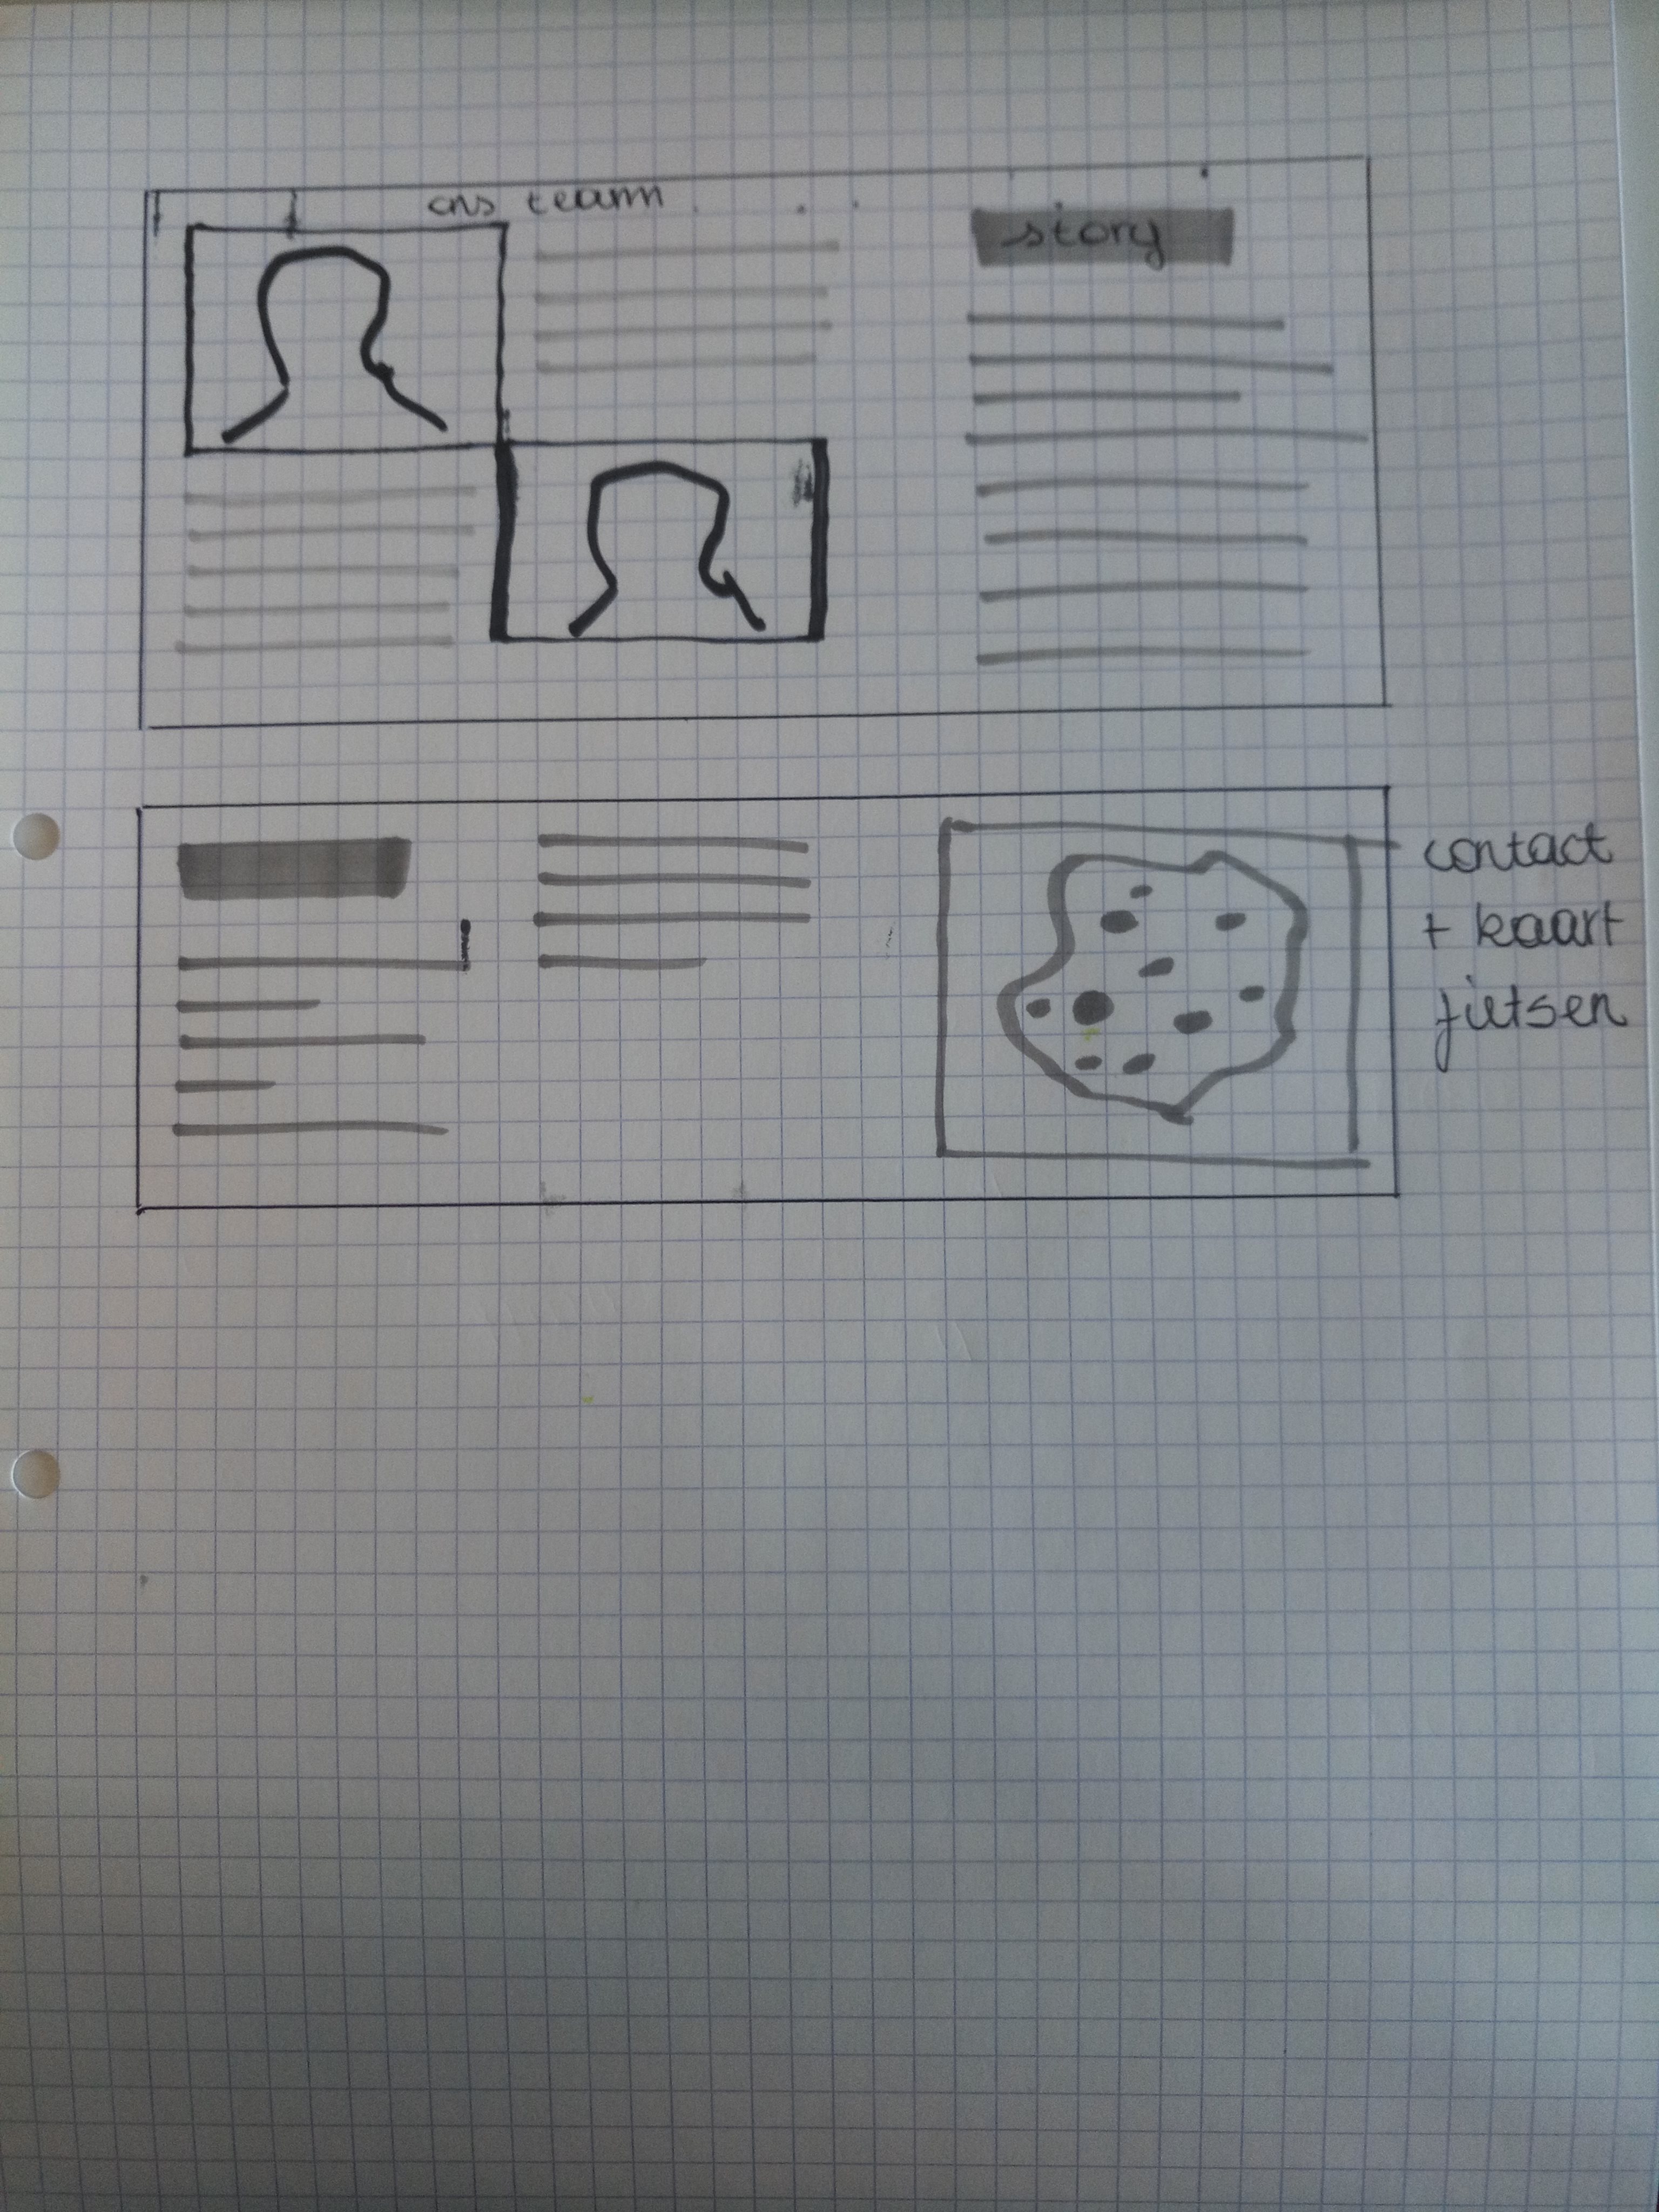 ons team
story
contact
+ kaart
fietsen